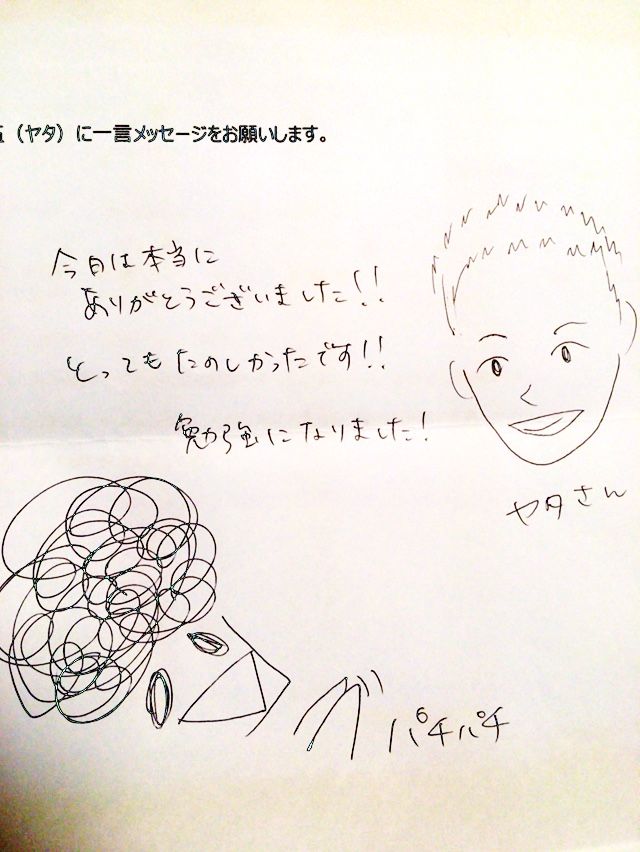 （ヤタ）に一言メッセージをお願いします。
今日は本当に
ありがとうございました!!
とってもたのしかったです!!
勉強になりました!
ヤタさん
パチパチ